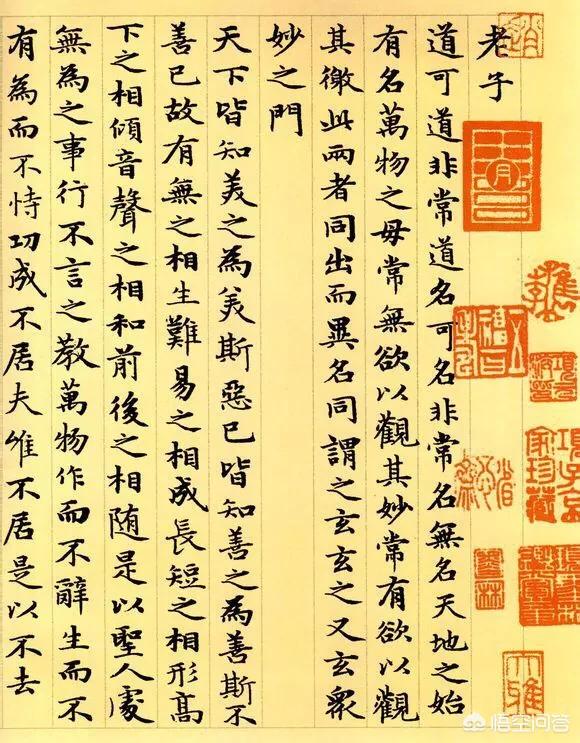 老子
道可道非常道名可名非常名無名天地之始
有名萬物之母常無欲以觀其妙常有欲以觀
其徼此兩者同出而異名同謂之玄玄之又玄眾
妙之門
天下皆知美之為美斯惡已皆知善之為善斯不
善已故有無之相生難易之相成長短之相形高
下之相傾音聲之相和前後之相随是以聖人處
無為之事行不言之教萬物作而不辭生而不
有為而不恃功成不居夫唯不居是以不去
項子京
家珍藏
悟空问答